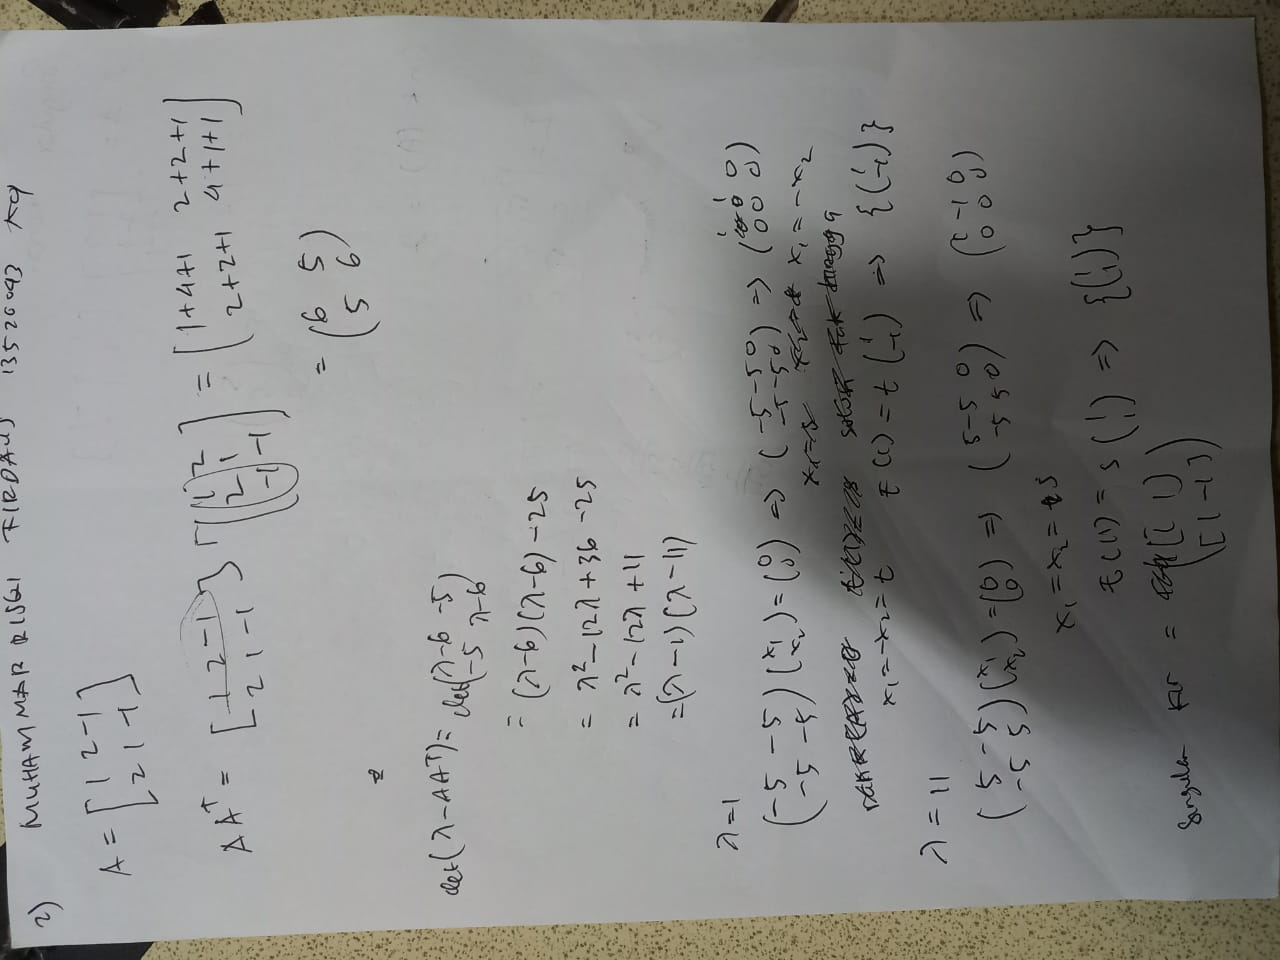 2) MUHAMMAD RISQI FIRDAUS 13520043 K04
A = [1 2 -1
2 1 -1]
AA^T = [1 2 -1
2 1 -1] [1 2
2 1
-1 -1] = [1+4+1 2+2+1
2+2+1 4+1+1]
= (6 5
5 6)
det(λ-AA^T) = det(λ-6 -5
-5 λ-6)
= (λ-6)(λ-6) -25
= λ² -12λ +36 -25
= λ² -12λ +11
= (λ-1)(λ-11)
λ=1
(-5 -5
-5 -5) (x₁
x₂) = (0
0) => (-5 -5 0
-5 -5 0) => (1 1 0
0 0 0)
x₁ = -x₂
x₁ = -x₂ = t E(1) = t (1
-1) => {(1
-1)}
λ = 11
(5 -5
-5 5) (x₁
x₂) = (0
0) => (5 -5 0
-5 5 0) => (1 -1 0
0 0 0)
x₁ = x₂ = s
E(1) = s (1
1) => {(1
1)}
singular kir = ([1 1]
[1 -1])